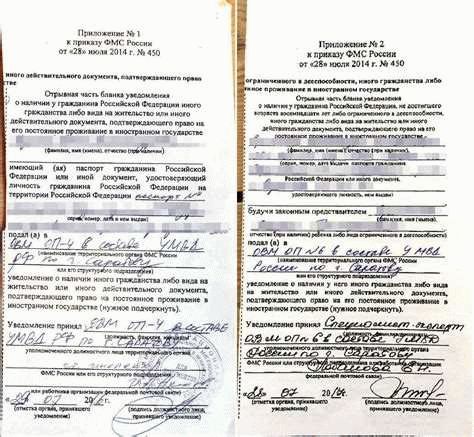 Приложение № 1
к приказу ФМС России
от «28» июля 2014 г. № 450
иного действительного документа, подтверждающего право
стве
Отрывная часть бланка уведомления
о наличии у гражданина Российской Федерации иного
гражданства либо вида на жительство или иного
действительного документа, подтверждающего право на
его постоянное проживание в иностранном государстве
(фамилия, имя (имена), отчество (при наличии)
имеющий (ая) паспорт гражданина Российской
Федерации или иной документ, удостоверяющий
личность гражданина Российской Федерации на
территории Российской Федерации паспорт №
(серия, номер, дата, кем выдан)
подал (а) в
ОВМ ОП-4 в составе УМВД
РФ по г. Саратову
(наименование территориального органа ФМС России
или его структурного подразделения)
уведомление о наличии иного гражданства либо вида на
жительство или иного действительного документа,
подтверждающего право на постоянное проживание в
иностранном государстве (нужное подчеркнуть).
Уведомление принял ОВМ ОП-4 в составе
УМВД РФ по г. Сарат
(должность, фамилия, инициалы
уполномоченного должностного лица территориального органа
ФМС России или его структурного подразделения
или работника организации федеральной почтовой связи)
«28» 07 20
(отметка органа, принявшего уведомление)
(подпись должностного лица, принявшего уведомление)
Приложение № 2
к приказу ФМС России
от «28» июля 2014 г. № 450
ограниченного в дееспособности, иного гражданства либо
тоянное проживание в иностранном государстве
Отрывная часть бланка уведомления
о наличии у гражданина Российской Федерации, не достигшего
возраста восемнадцати лет либо ограниченного в дееспособности,
иного гражданства либо вида на жительство или иного
действительного документа, подтверждающего право на его
постоянное проживание в иностранном государстве
(фамилия, имя (имена), отчество (при наличии)
(серия, номер, дата выдачи паспорта гражданина
удостоверяющего личность, кем выдан)
будучи законным представителем
(фамилия, имя (имена)
отчество (при наличии) ребенка либо лица, ограниченного в дееспособности)
подал (а) в ОВМ ОП №6 в составе УМВД
России по г. Саратову
(наименование территориального органа ФМС России
или его структурного подразделения)
уведомление о наличии у него иного гражданства либо вида на
жительство или иного действительного документа,
подтверждающего право на постоянное проживание в
иностранном государстве (нужное подчеркнуть).
Уведомление принял Специалист-эксперт
ОВМ ОП №6 в составе УМВД
России по г. Саратову
уполномоченного должностного лица территориального органа
ФМС России или его структурного подразделения
или работника организации федеральной почтовой связи)
«28» 07 20
(отметка органа, принявшего уведомление)
(подпись должностного лица, принявшего уведомление)